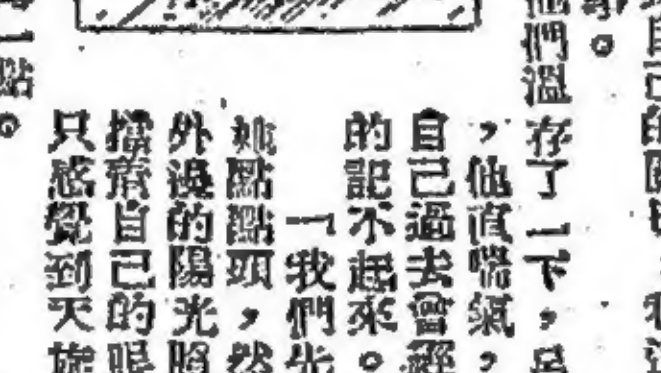 自己的
。
他們溫存了一下，
，他直喘氣，
自己過去曾經
的記不起來。
「我們先
她點點頭，然
外邊的陽光
擋着自己的眼
只感覺到天旋
一點。